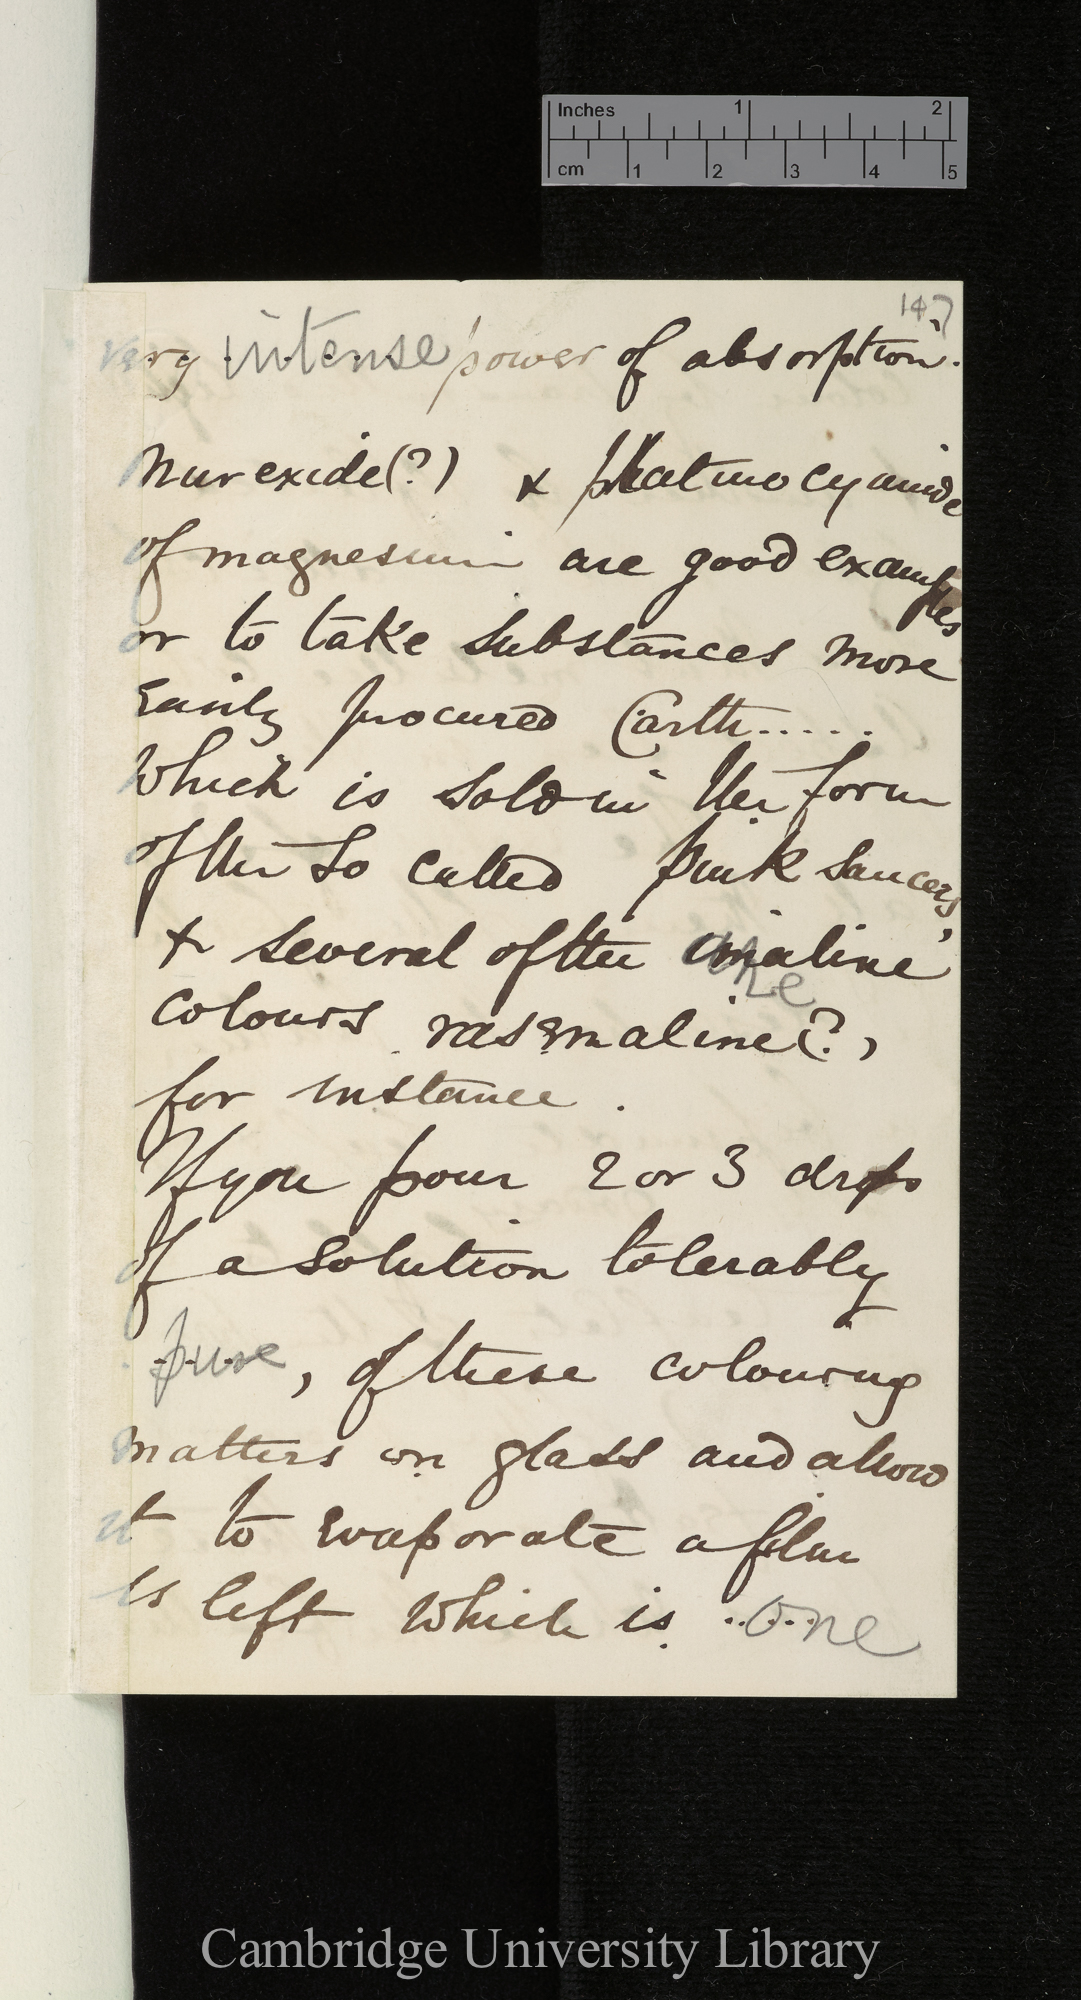 Inches 1 2
cm 1 2 3 4 5
147
very intense power of absorption.
Murexide(?) & platinocyanide
of magnesium are good examples
or to take substances more
easily procured Carth.....
which is sold in the form
of the so called pink saucers,
& several of the analine
colours rasanaline(?,
for instance.
If you pour 2 or 3 drops
of a solution tolerably
pure, of these colouring
matters on glass and allow
it to evaporate a film
is left which is one
Cambridge University Library